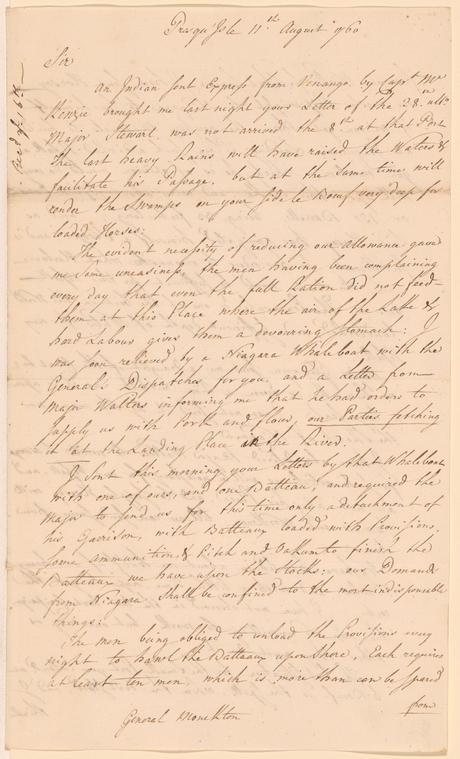 Presqu'Isle 11th August 1760
Sir
Rec'd ye 16th
An Indian sent Express from Venango by Capt. Mc
Kenzie brought me last night your Letter of the 28th ulto.
Major Stewart was not arrived the 8th at that Post
The last heavy Rains will have raised the Waters &
facilitate his Passage, but at the same time will
render the Swamps on your side le Boeuf very deep for
loaded Horses:
The evident necessity of reducing our allowance gave
me some uneasiness, the men having been complaining
every day that even the full Ration did not feed
them at this Place where the air of the Lake &
hard Labour gives them a devouring stomach: I
was soon relieved by a Niagara Whaleboat with the
General's Dispatches for you, and a Letter from
Major Walters informing me that he had orders to
supply us with Pork and flour, our Parties fetching
it at the Landing Place in the River.
I sent this morning your Letters by that Whaleboat
with one of ours, and one Batteau; and required the
Major to send us for this time only a detachment of
his Garrison, with Batteaux loaded with Provisions,
some ammunition, & Pitch and Oakum to finish the
Batteaux we have upon the Stocks: our Demands
from Niagara shall be confined to the most indispensable
things:
The men being obliged to unload the Provisions every
night to hawl the Batteaux upon Shore, Each requires
at least ten men, which is more than can be spared
from
General Monckton